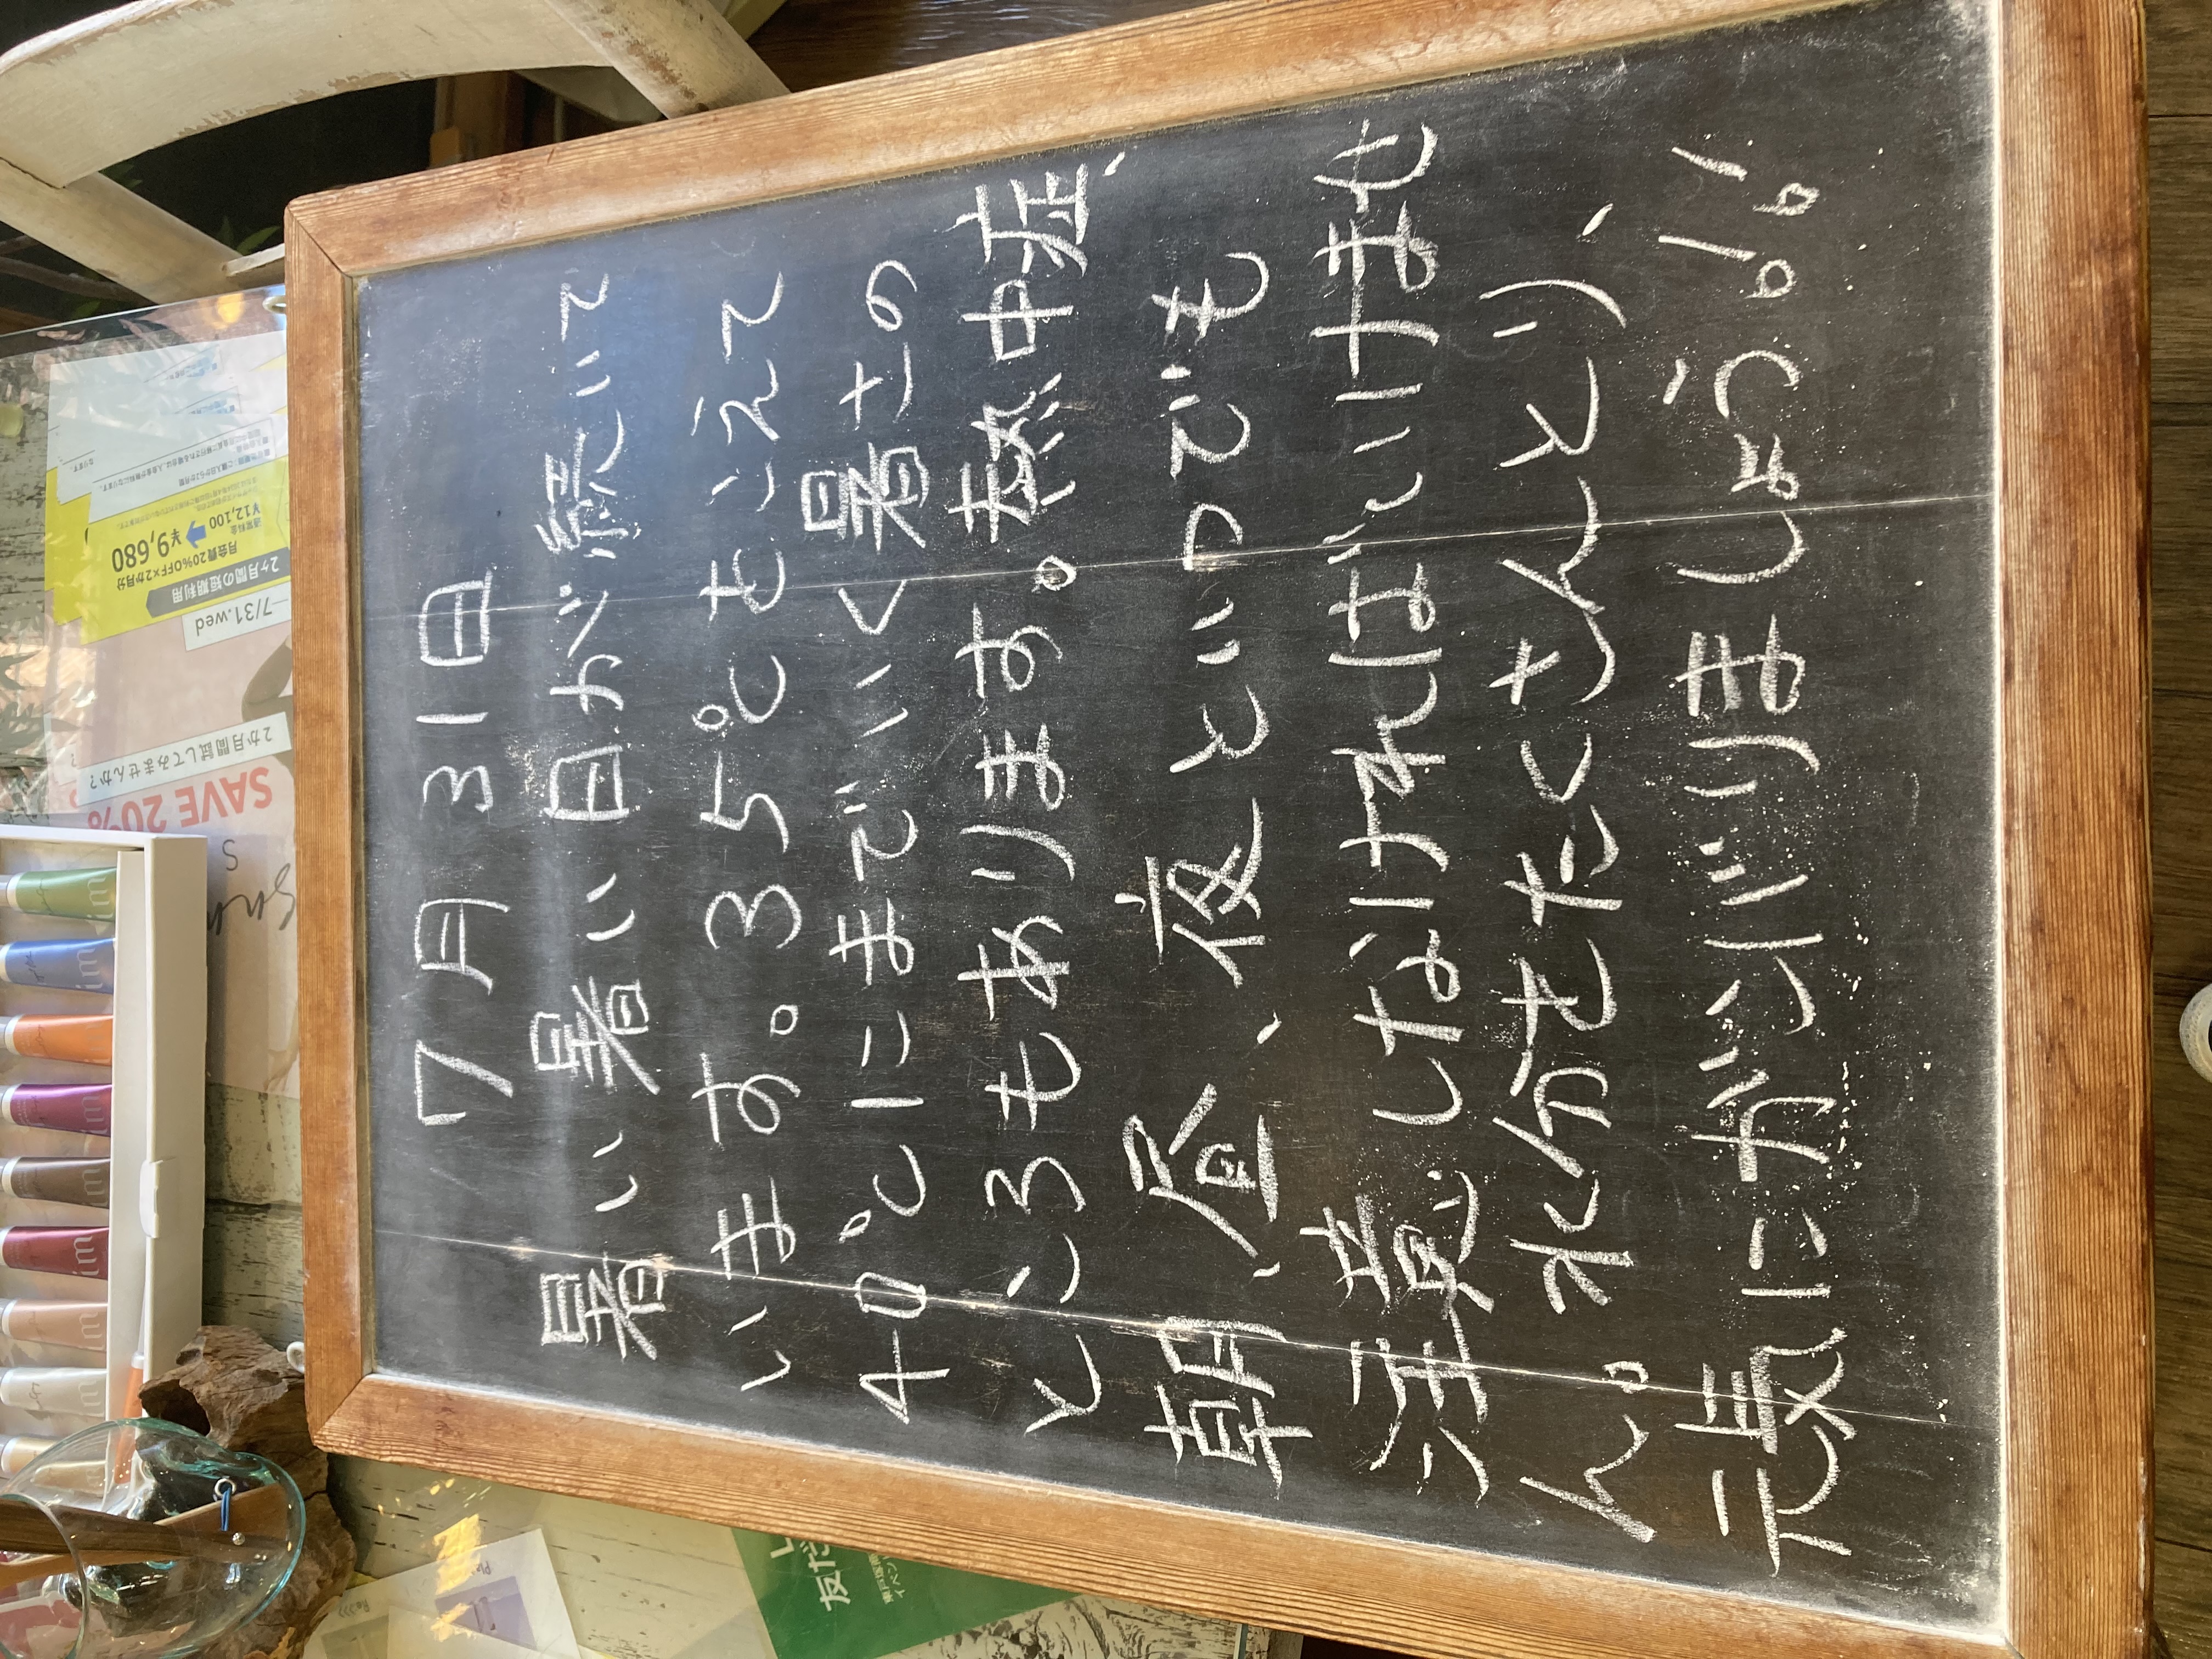 7月31日
暑い暑い日が続いて
います。35℃をこえて
40℃にまでいく暑さの
ところもあります。熱中症、
朝、昼、夜といつでも
注意しなければいけませ
ん。水分をたくさんとり、
元気にがんばりましょう!!
2ヶ月間の短期利用
7/31.wed
月会費20%OFF×2か月分
通常料金
¥12,100
¥9,680
2か月間試してみませんか?
SAVE 20%
友だ